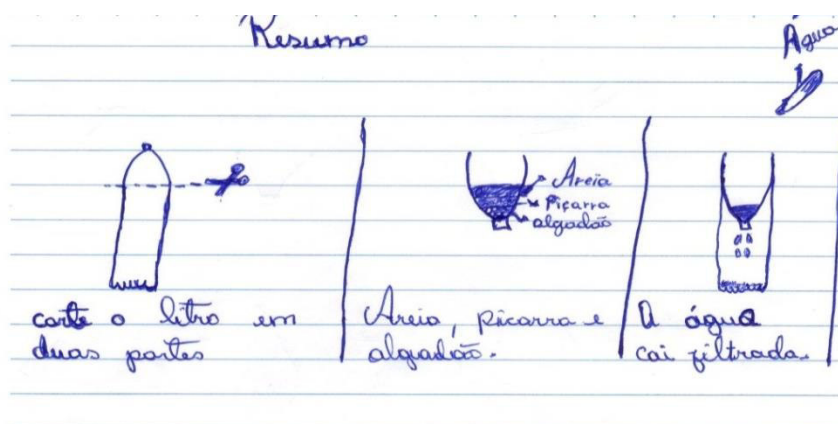 Resumo
Água
Areia
Piçarra
algodão
corte o litro em
duas partes
Areia, piçarra e
algodão.
A água
cai filtrada.